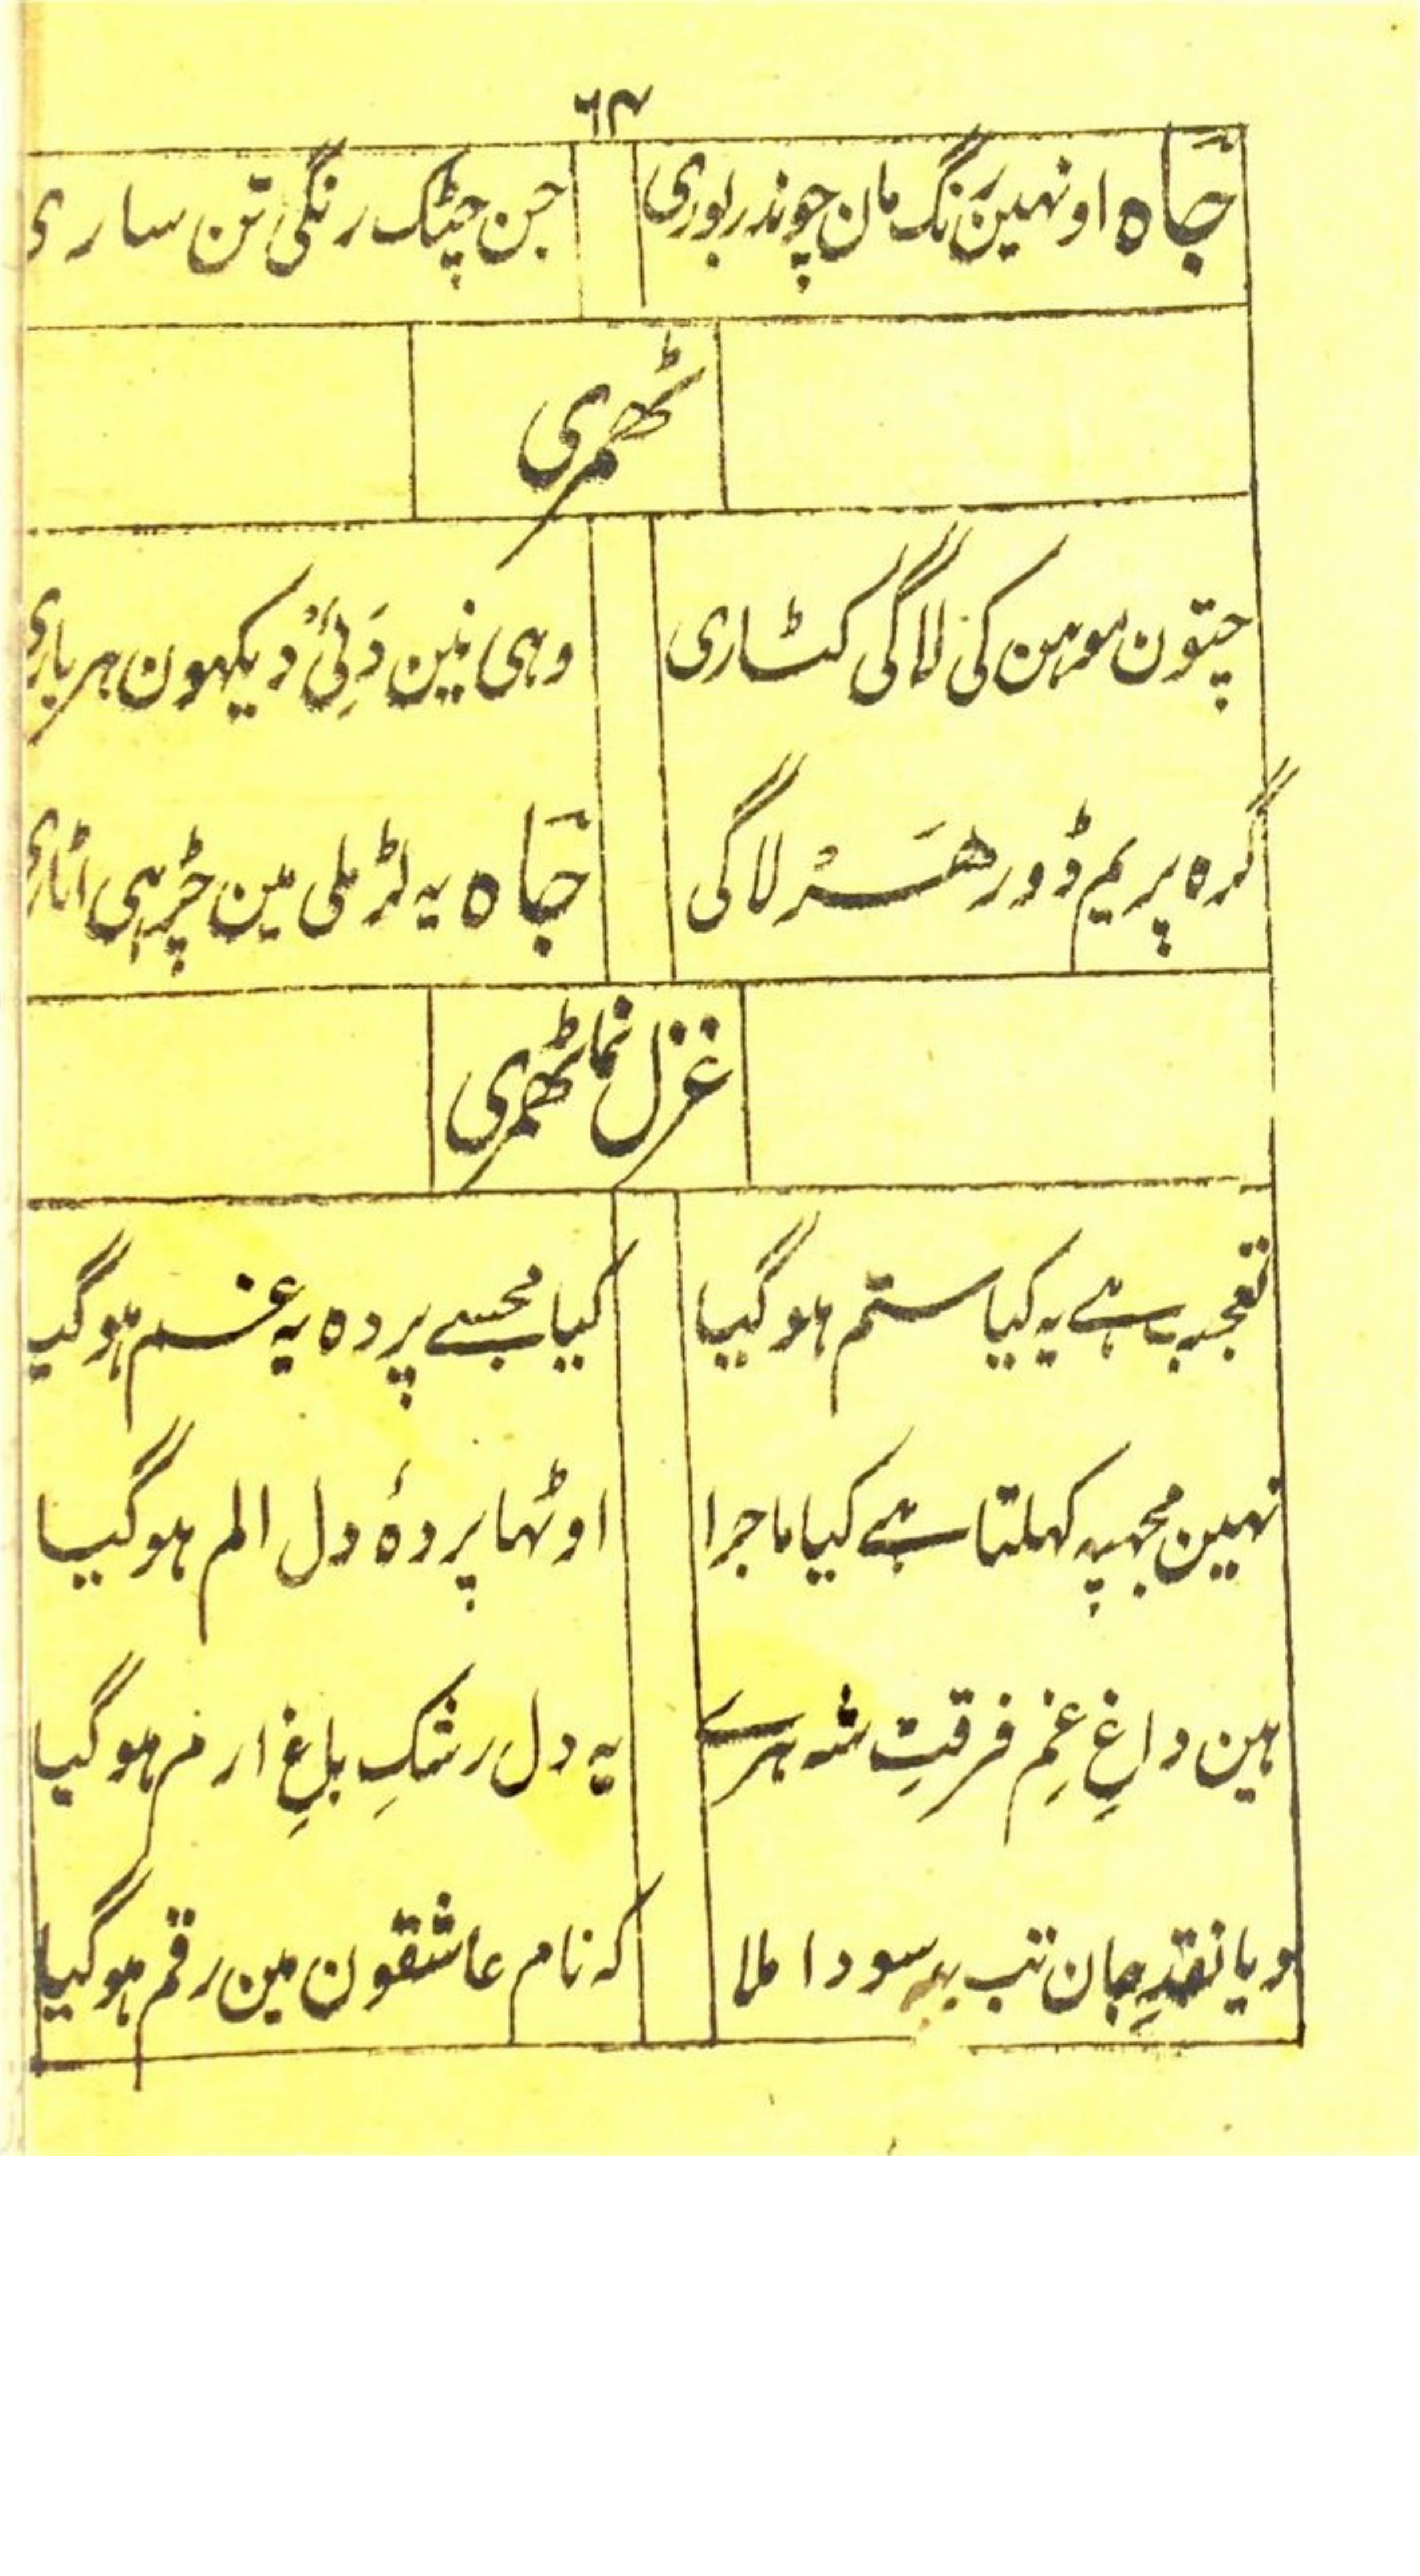 ٦٢
جاہ اونہین رنگ مان چوندر بوری جن چٹک رنگی تن ساری
ٹھمری
چتون موہن کی لاگی کٹاری وہی نین دَئِی دیکھون ہر باری
گرہ پریم ڈور ھَسْر لاگی جاہ یہ لڑ ملی مین چڑہی اٹاری
غزل نما ٹھمری
تعجب ہے یہ کیا ستم ہوگیا کیا مجسے پردہ یہ غم ہوگیا
نہین مجہپہ کہلتا ہے کیا ماجرا اوٹہا پردۂ دل الم ہوگیا
ہین داغِ غمِ فرقتِ شہ ہرے یہ دل رشکِ باغِ ارم ہوگیا
دیا نقدِ جان تب یہ سودا ملا کہ نام عاشقون مین رقم ہوگیا